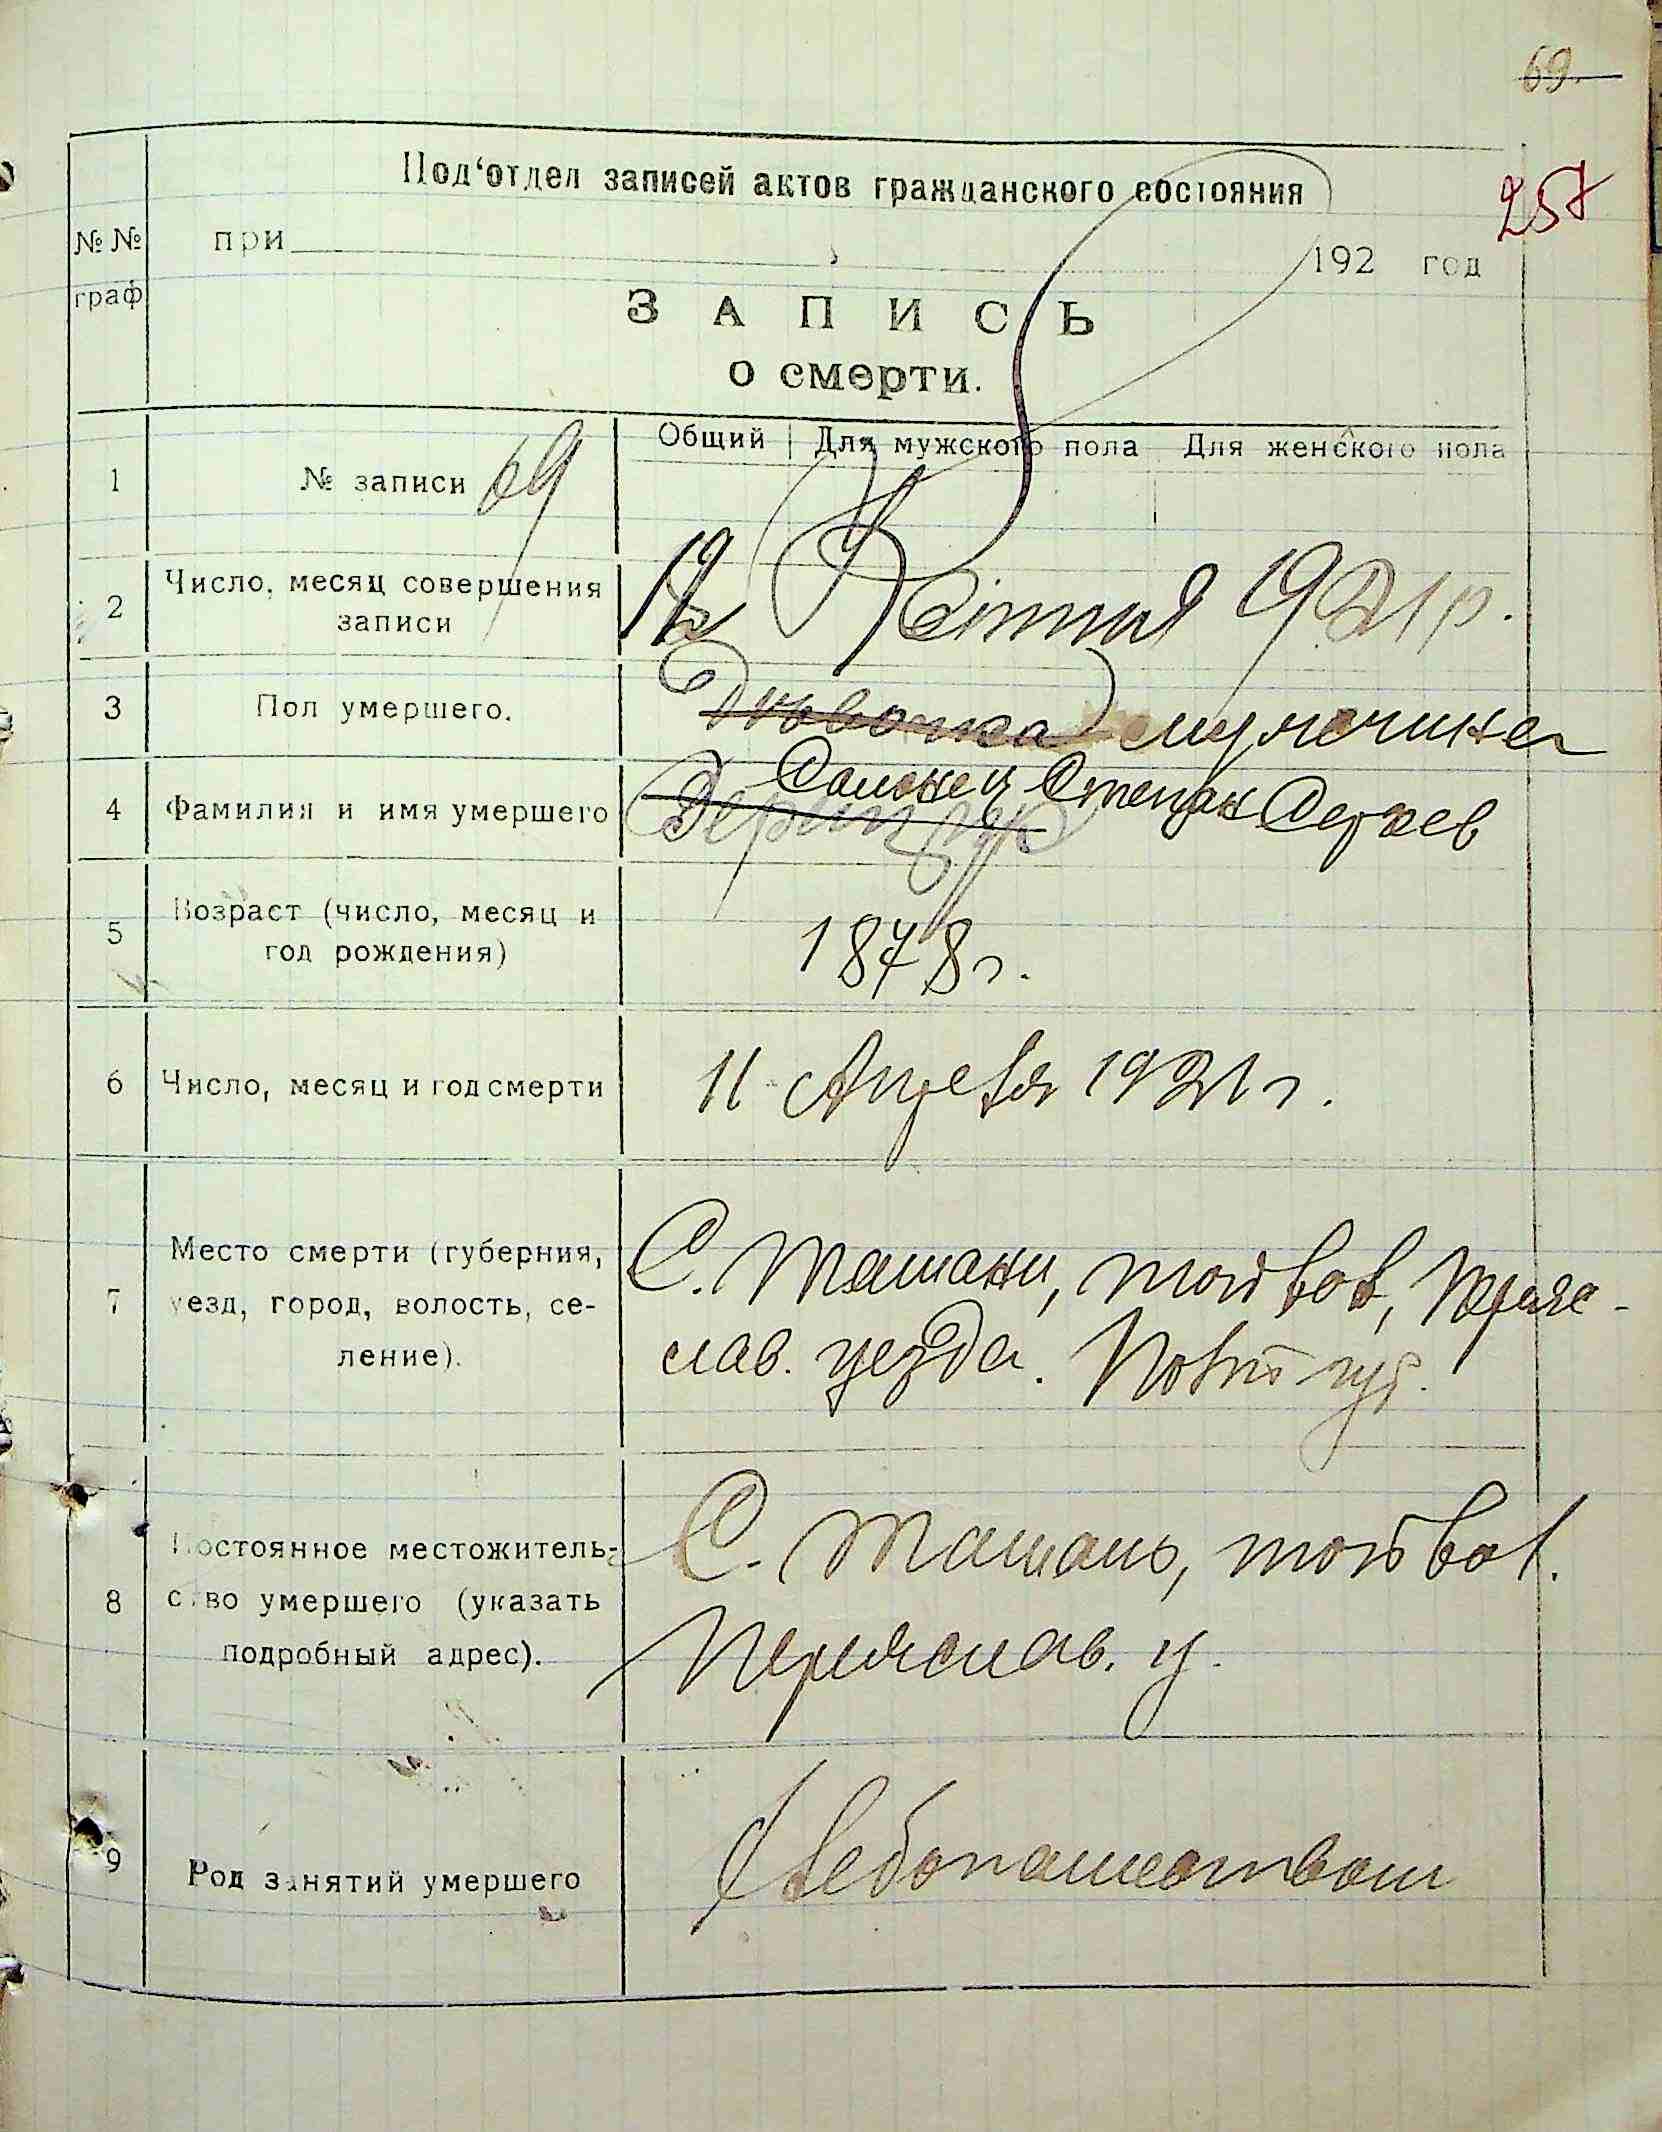 69.
257
Под‘отдел записей актов гражданского состояния
№ №
граф
при 192 год
ЗАПИСЬ
о смерти.
Общий Для мужского пола Для женского пола
1 № записи 69
2 Число, месяц совершения
записи
12 Квітня 1921 р.
3 Пол умершего.
мужчина
4 Фамилия и имя умершего
Степан
5 Возраст (число, месяц и
год рождения)
1878 г.
6 Число, месяц и год смерти
11 Апреля 1921 г.
7 Место смерти (губерния,
уезд, город, волость, се-
ление).
С. Ташани, той вол, Перяс-
лав. уезда. Полт губ.
8 Постоянное местожитель-
ство умершего (указать
подробный адрес).
С. Ташань, той вол.
Переяслав. у.
9 Род занятий умершего
Хлебопашеством